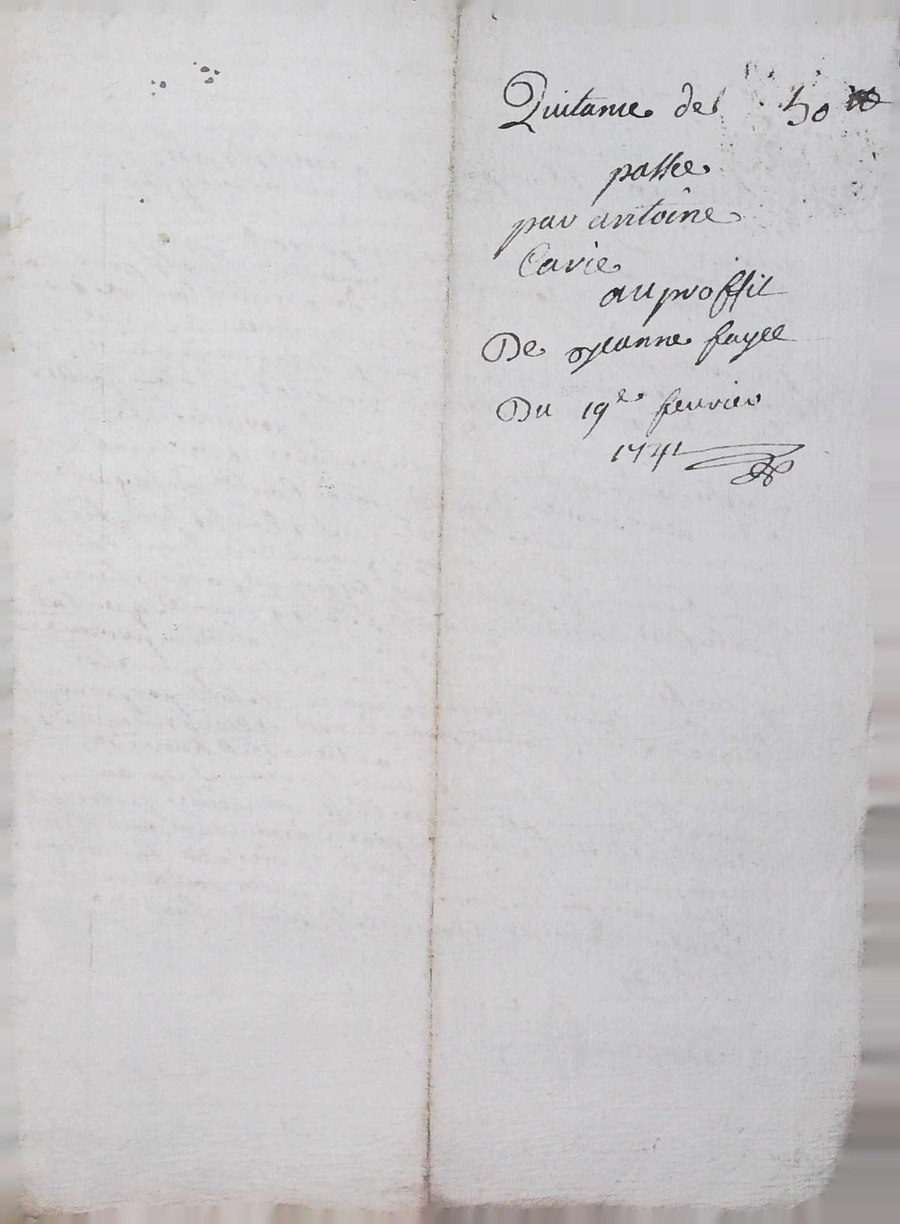 Quitance de 50 ₶
passée
par antoine
Carie
au proffit
De Jeanne fayee
Du 19e fevrier
1741